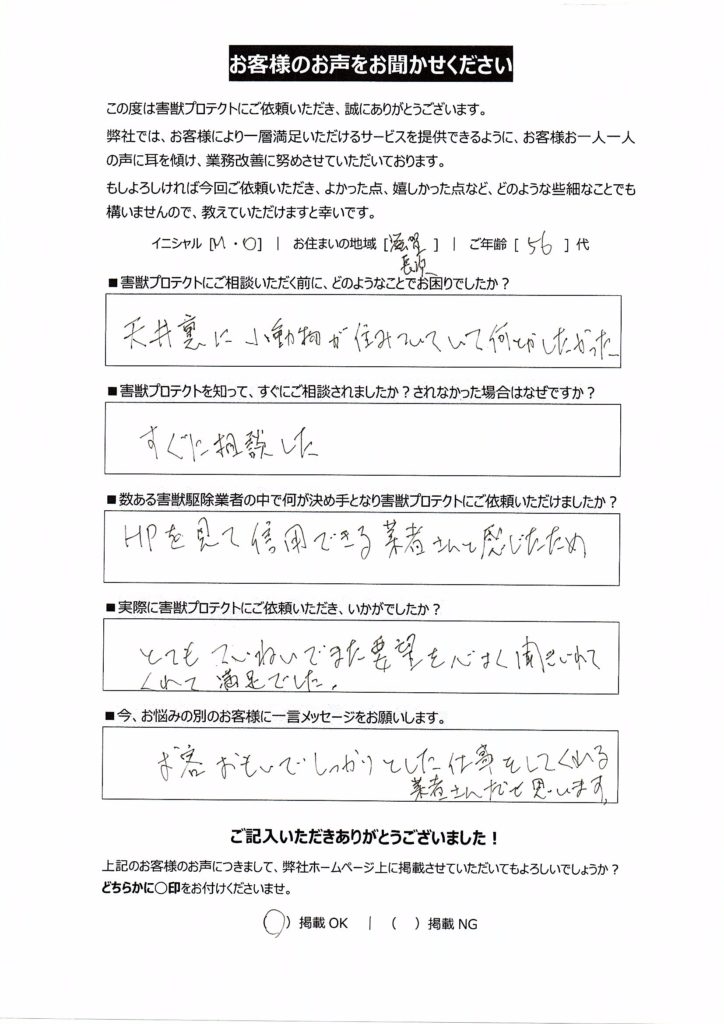 お客様のお声をお聞かせください
この度は害獣プロテクトにご依頼いただき、誠にありがとうございます。
弊社では、お客様により一層満足いただけるサービスを提供できるように、お客様お一人一人
の声に耳を傾け、業務改善に努めさせていただいております。
もしよろしければ今回ご依頼いただき、よかった点、嬉しかった点など、どのような些細なことでも
構いませんので、教えていただけますと幸いです。
イニシャル [M・O] | お住まいの地域 [滋賀 ] | ご年齢 [ 56 ] 代
長浜
■害獣プロテクトにご相談いただく前に、どのようなことでお困りでしたか？
天井裏に小動物が住みついていて何とかしたかった
■害獣プロテクトを知って、すぐにご相談されましたか？されなかった場合はなぜですか？
すぐに相談した
■数ある害獣駆除業者の中で何が決め手となり害獣プロテクトにご依頼いただけましたか？
HPを見て信用できる業者さんと感じたため
■実際に害獣プロテクトにご依頼いただき、いかがでしたか？
とてもていねいでまた要望を心よく聞きいれて
くれて満足でした。
■今、お悩みの別のお客様に一言メッセージをお願いします。
お客おもいでしっかりとした仕事をしてくれる
業者さんだと思います。
ご記入いただきありがとうございました！
上記のお客様のお声につきまして、弊社ホームページ上に掲載させていただいてもよろしいでしょうか？
どちらかに〇印をお付けくださいませ。
(〇) 掲載 OK | ( ) 掲載 NG